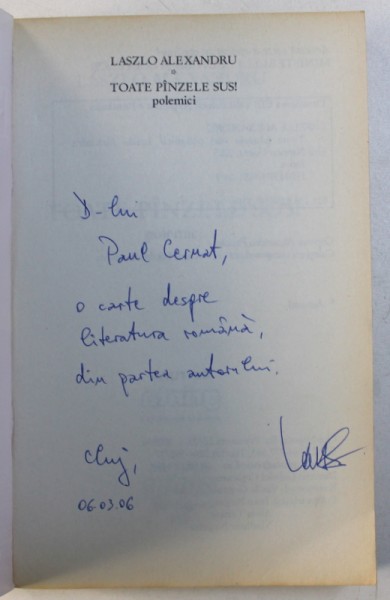 LASZLO ALEXANDRU
TOATE PÎNZELE SUS!
polemici
D-lui
Paul Cernat,
o carte despre
literatura română,
din partea autorului.
Cluj,
06.03.06